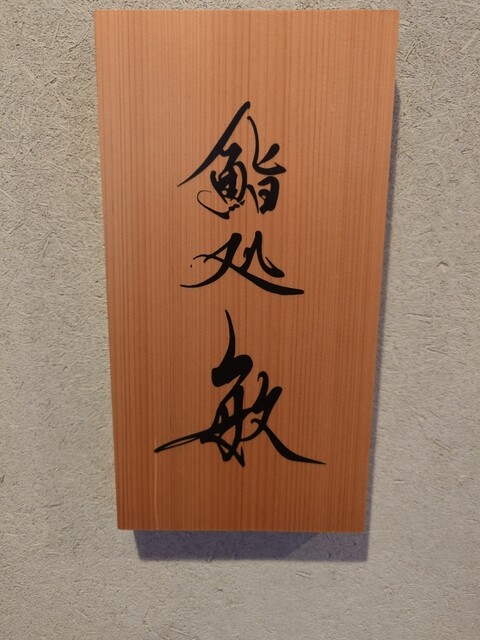 鮨処敏